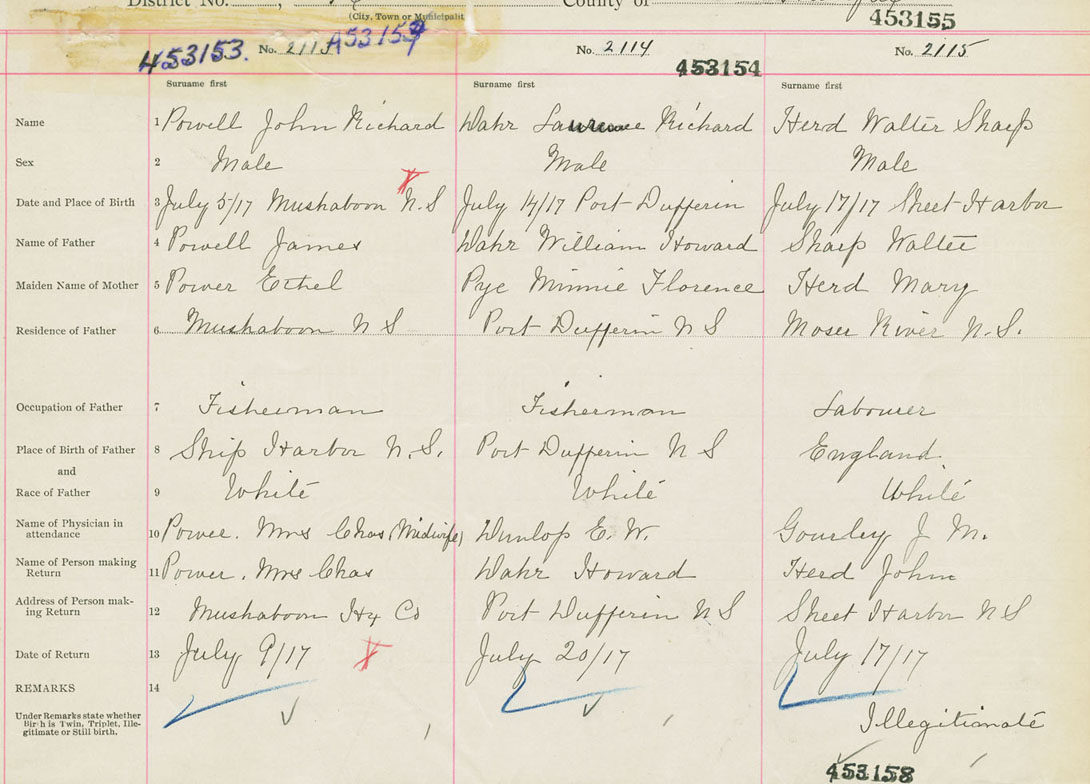 District No. , County of
(City, Town or Municipalit
453155
453153. No. 2113 A53154 No. 2114 No. 2115
453154
Surname first Surname first Surname first
Name 1 Powell John Richard Wahr Lawrence Richard Herd Walter Sharp
Sex 2 Male Male Male
Date and Place of Birth 3 July 5/17 Mushaboon N.S July 14/17 Port Dufferin July 17/17 Sheet Harbor
Name of Father 4 Powell James Wahr William Howard Sharp Walter
Maiden Name of Mother 5 Power Ethel Pye Minnie Florence Herd Mary
Residence of Father 6 Mushaboon N S Port Dufferin N S Moser River N.S.
Occupation of Father 7 Fisherman Fisherman Labourer
Place of Birth of Father 8 Ship Harbor N.S. Port Dufferin N S England
and
Race of Father 9 White White White
Name of Physician in
attendance 10 Power. Mrs Chas (Midwife) Dunlop E. W. Gourley J M.
Name of Person making
Return 11 Power. Mrs Chas Wahr Howard Herd John
Address of Person mak-
ing Return 12 Mushaboon Hx Co Port Dufferin N S Sheet Harbor N S
Date of Return 13 July 9/17 July 20/17 July 17/17
REMARKS 14
Under Remarks state whether
Birth is Twin, Triplet, Ille-
gitimate or Still birth. Illegitimate
453158